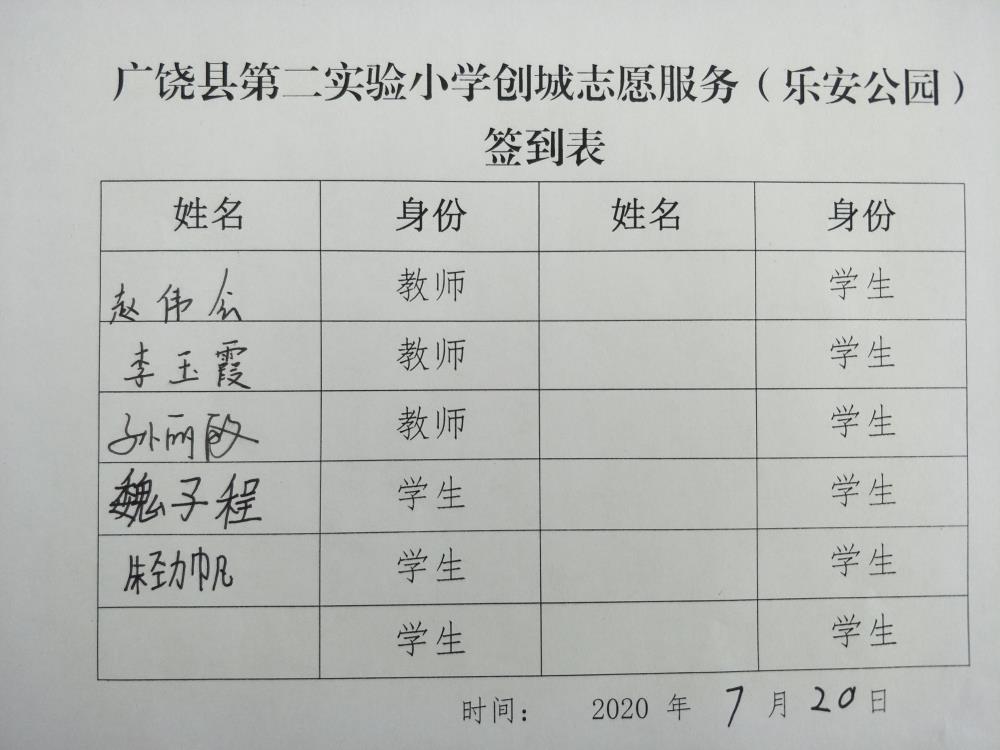 广饶县第二实验小学创城志愿服务（乐安公园）
签到表
姓名 身份 姓名 身份
赵伟会 教师 学生
李玉霞 教师 学生
孙丽敏 教师 学生
魏子程 学生 学生
朱劲帆 学生 学生
学生 学生
时间： 2020 年 7 月 20 日